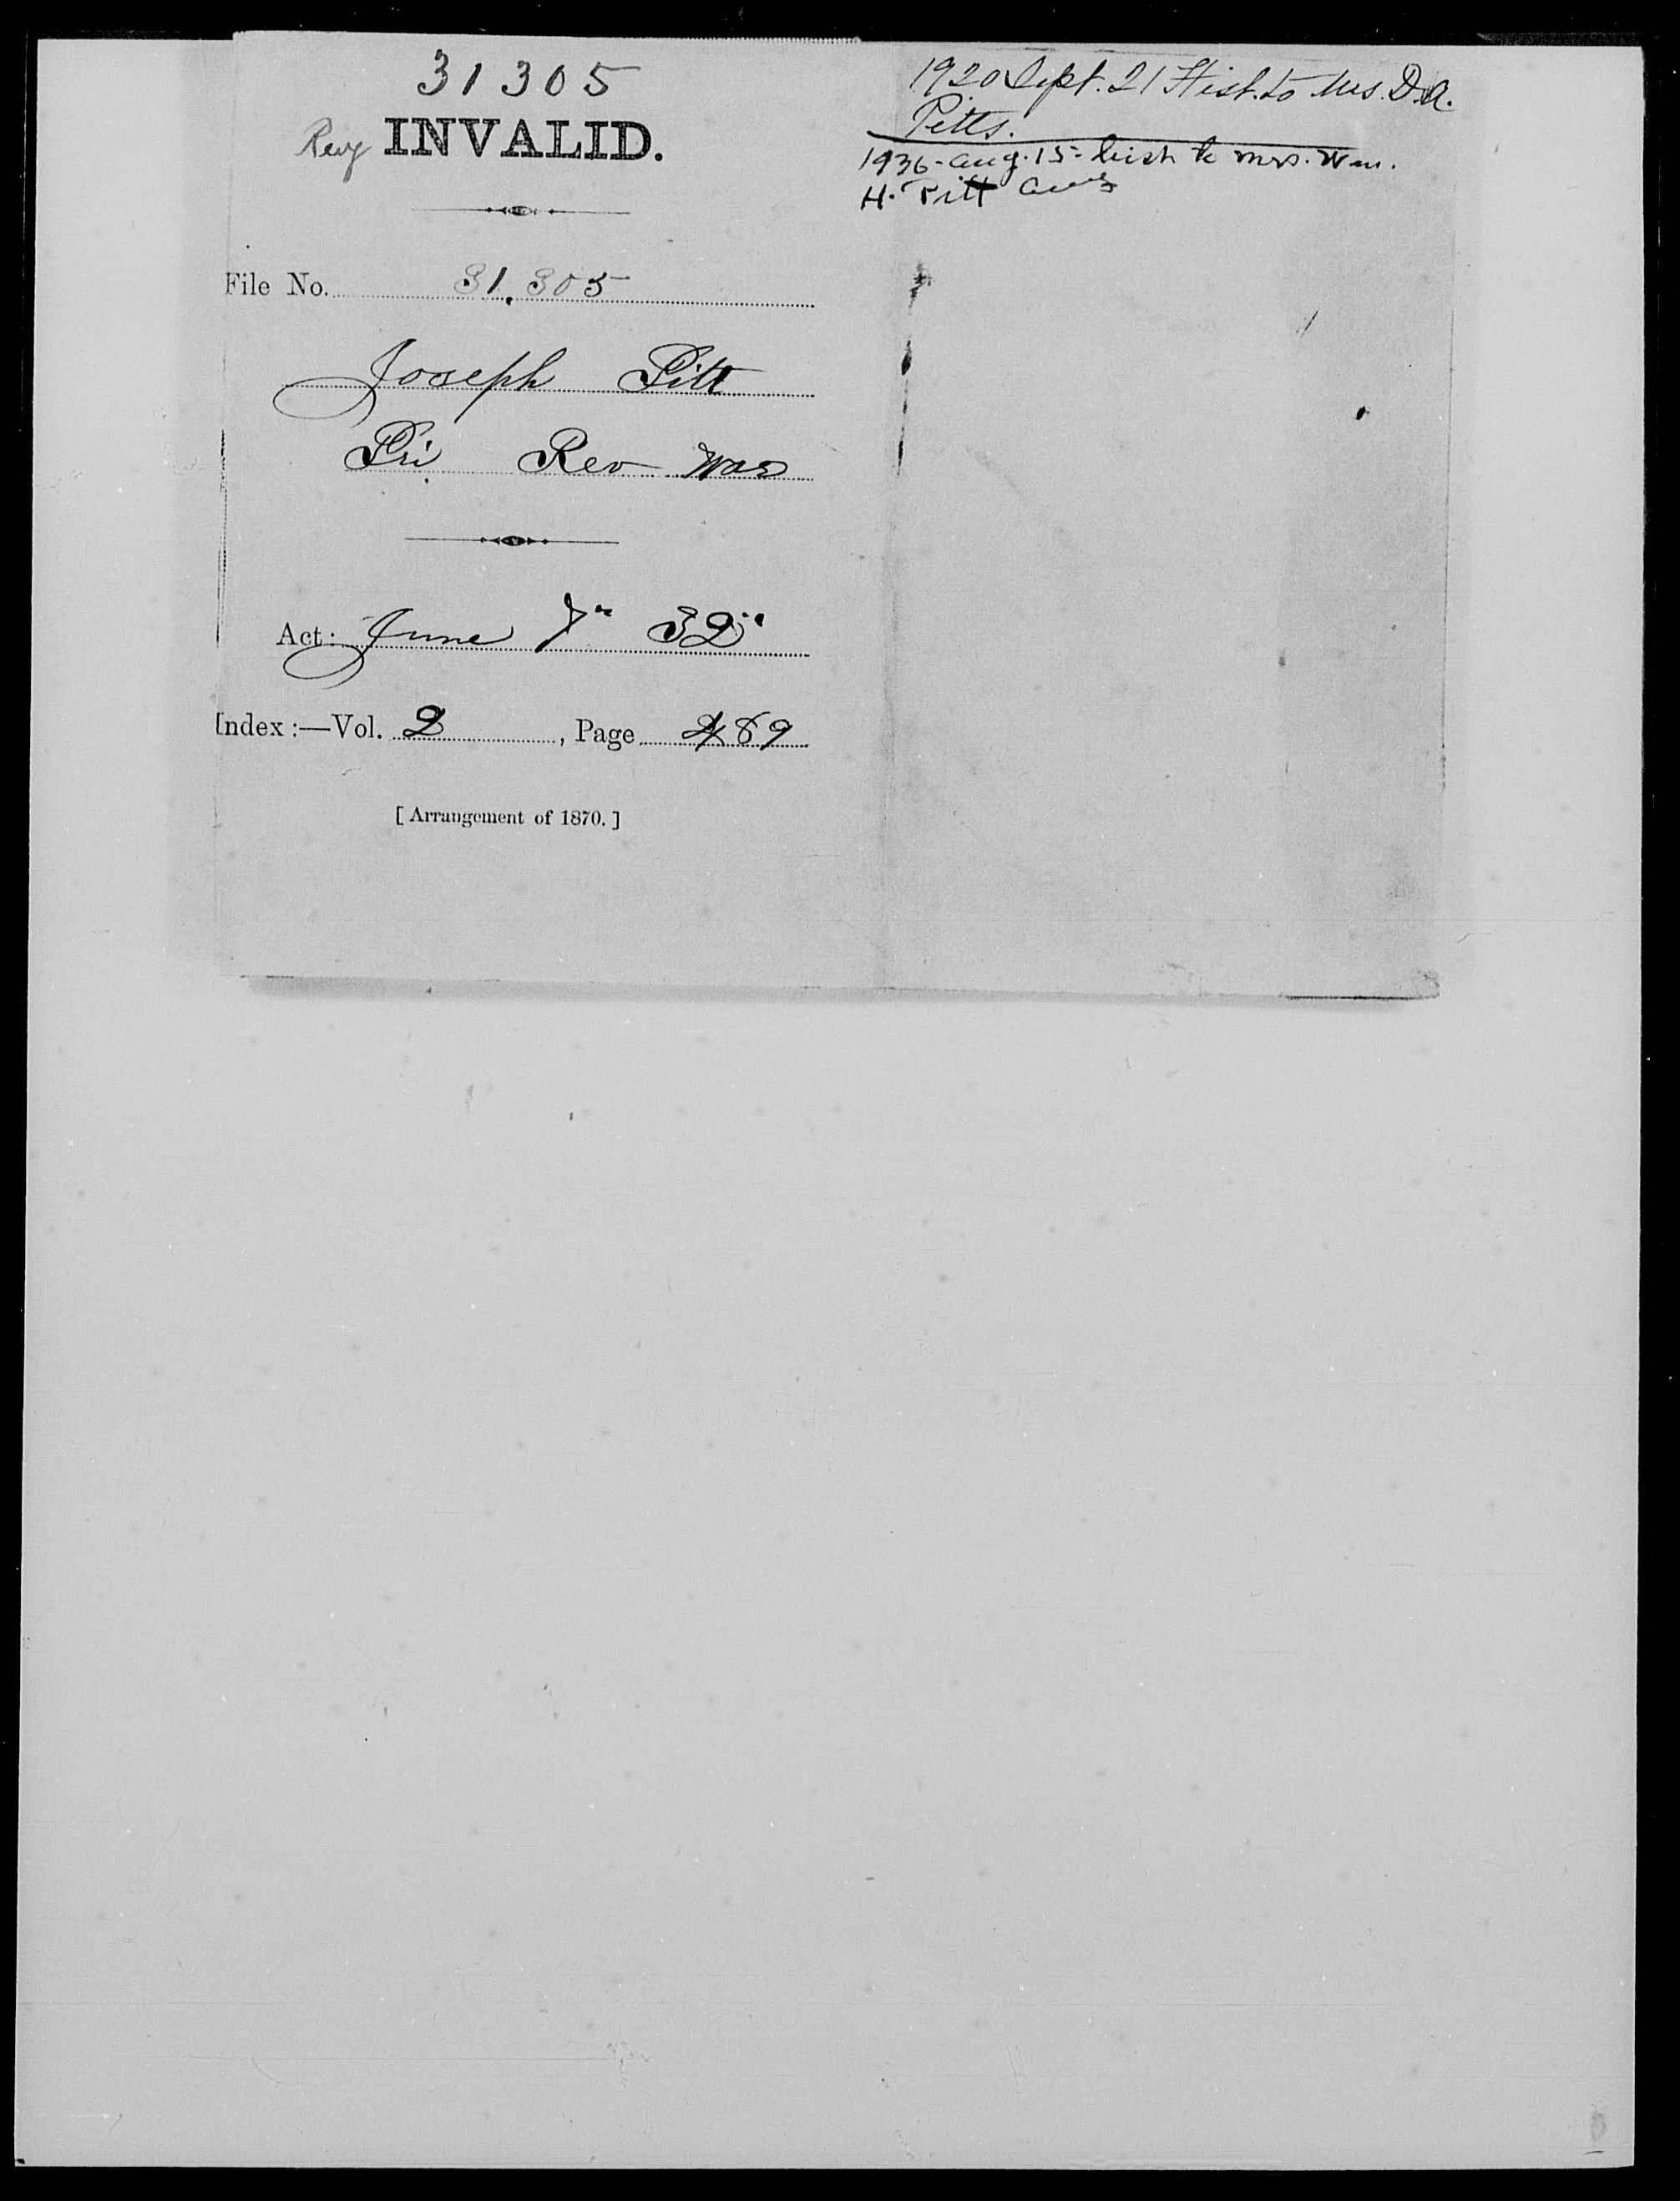 31305
Rev INVALID.
File No. 31,305
Joseph Pitt
Pri Rev War
Act: June 7" 32"
Index:—Vol. 2, Page 489
[Arrangement of 1870.]
1920 Sept. 21 Hist. to Mrs. D.A.
Pitts.
1936-Aug. 15- hist to Mrs. Wm.
H. Pitt